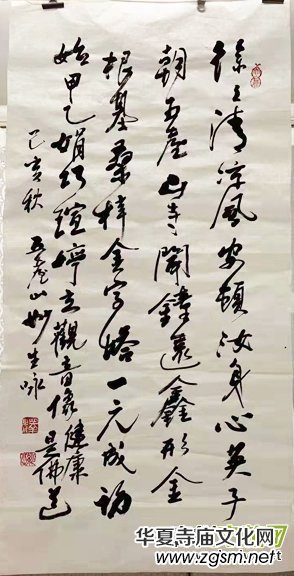 徐徐清凉风安顿汝身心英子
朝五台山寺闻钟远鑫形金
根基桑梓金字塔一元成初
始甲乙娟巧瑄婷立观音像健康
是佛道
己亥秋 五台山妙生咏
华夏寺庙文化网
www.zgsm.net